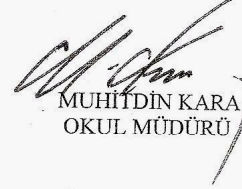 MUHİTDİN KARA
OKUL MÜDÜRÜ